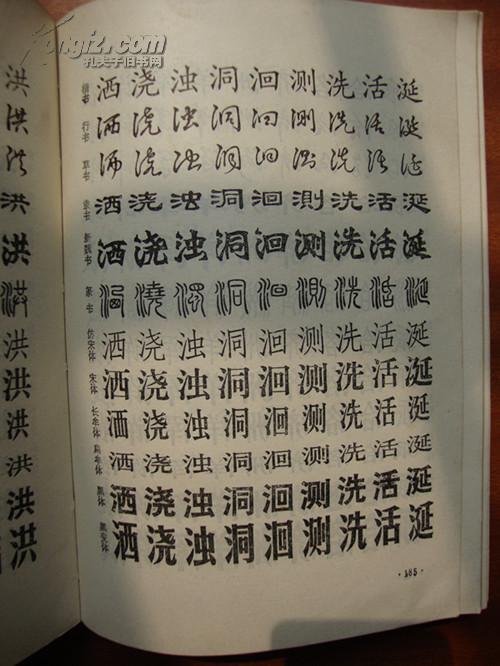 Kongfz.com
孔夫子旧书网
洪
洪
洪
洪
洪
洪
洪
洪
洪
洪
洪
洪
楷书 洒 浇 浊 洞 洄 测 洗 活 涎
行书 洒 浇 浊 洞 洄 测 洗 活 涎
草书 洒 浇 浊 洞 洄 测 洗 活 涎
隶书 洒 浇 浊 洞 洄 測 洗 活 涎
新魏书 洒 浇 浊 洞 洄 测 洗 活 涎
篆书 洒 澆 濁 洞 洄 測 洗 活 涎
仿宋体 洒 浇 浊 洞 洄 测 洗 活 涎
宋体 洒 浇 浊 洞 洄 测 洗 活 涎
长牟体 洒 浇 浊 洞 洄 测 洗 活 涎
扁牟体 洒 浇 浊 洞 洄 测 洗 活 涎
黑体 洒 浇 浊 洞 洄 测 洗 活 涎
黑变体 洒 浇 浊 洞 洄 测 洗 活 涎
·185·